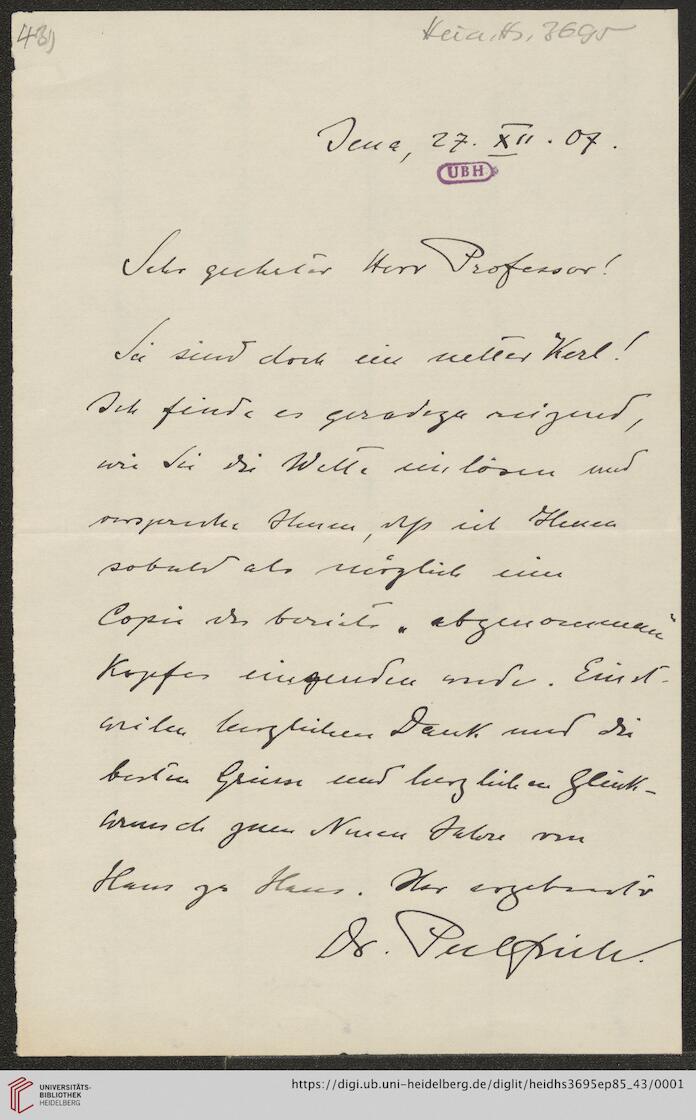 43)
Heid. Hs. 3695
Jena, 27. XII. 07.
UBH
Sehr geehrter Herr Professor!
Sie sind doch ein netter Kerl!
Ich finde es geradezu reizend,
wie Sie die Wette einlösen und
verspreche Ihnen, daß ich Ihnen
sobald als möglich eine
Copie des bereits „abgenommenen"
Kopfes einsenden werde. Einst-
weilen herzlichen Dank und die
besten Grüsse und herzlichen Glück-
wunsch zum Neuen Jahre von
Haus zu Haus. Ihr ergebenster
Dr. Pulfrich.
UNIVERSITÄTS-
BIBLIOTHEK
HEIDELBERG
https://digi.ub.uni-heidelberg.de/diglit/heidhs3695ep85_43/0001